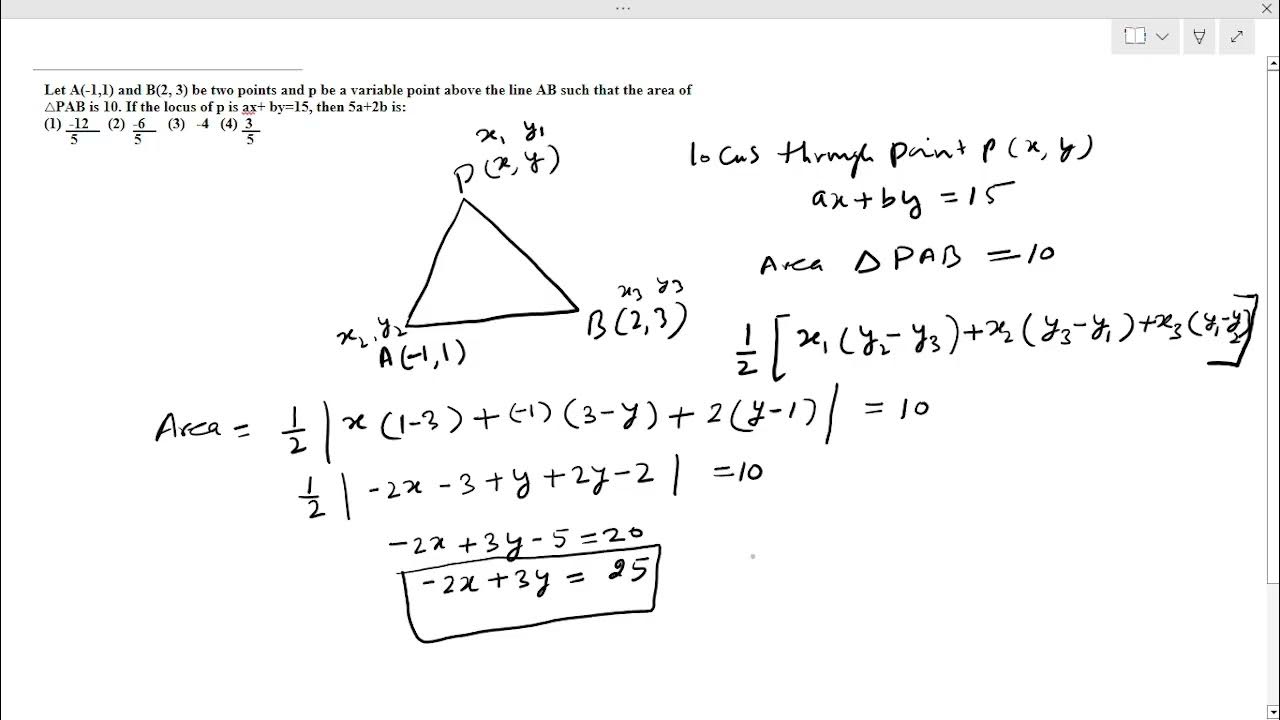 Let A(-1,1) and B(2, 3) be two points and p be a variable point above the line AB such that the area of
△PAB is 10. If the locus of p is ax+ by=15, then 5a+2b is:
(1) -12/5 (2) -6/5 (3) -4 (4) 3/5
x₁ y₁
P(x, y)
locus through point P(x, y)
ax+by=15
Area △ PAB =10
x₃ y₃
B(2,3)
x₂, y₂
A(-1,1)
1/2 [x₁(y₂-y₃)+x₂(y₃-y₁)+x₃(y₁-y₂)]
Area = 1/2 |x(1-3)+(-1)(3-y)+2(y-1)| =10
1/2 |-2x-3+y+2y-2| =10
-2x+3y-5=20
-2x+3y = 25